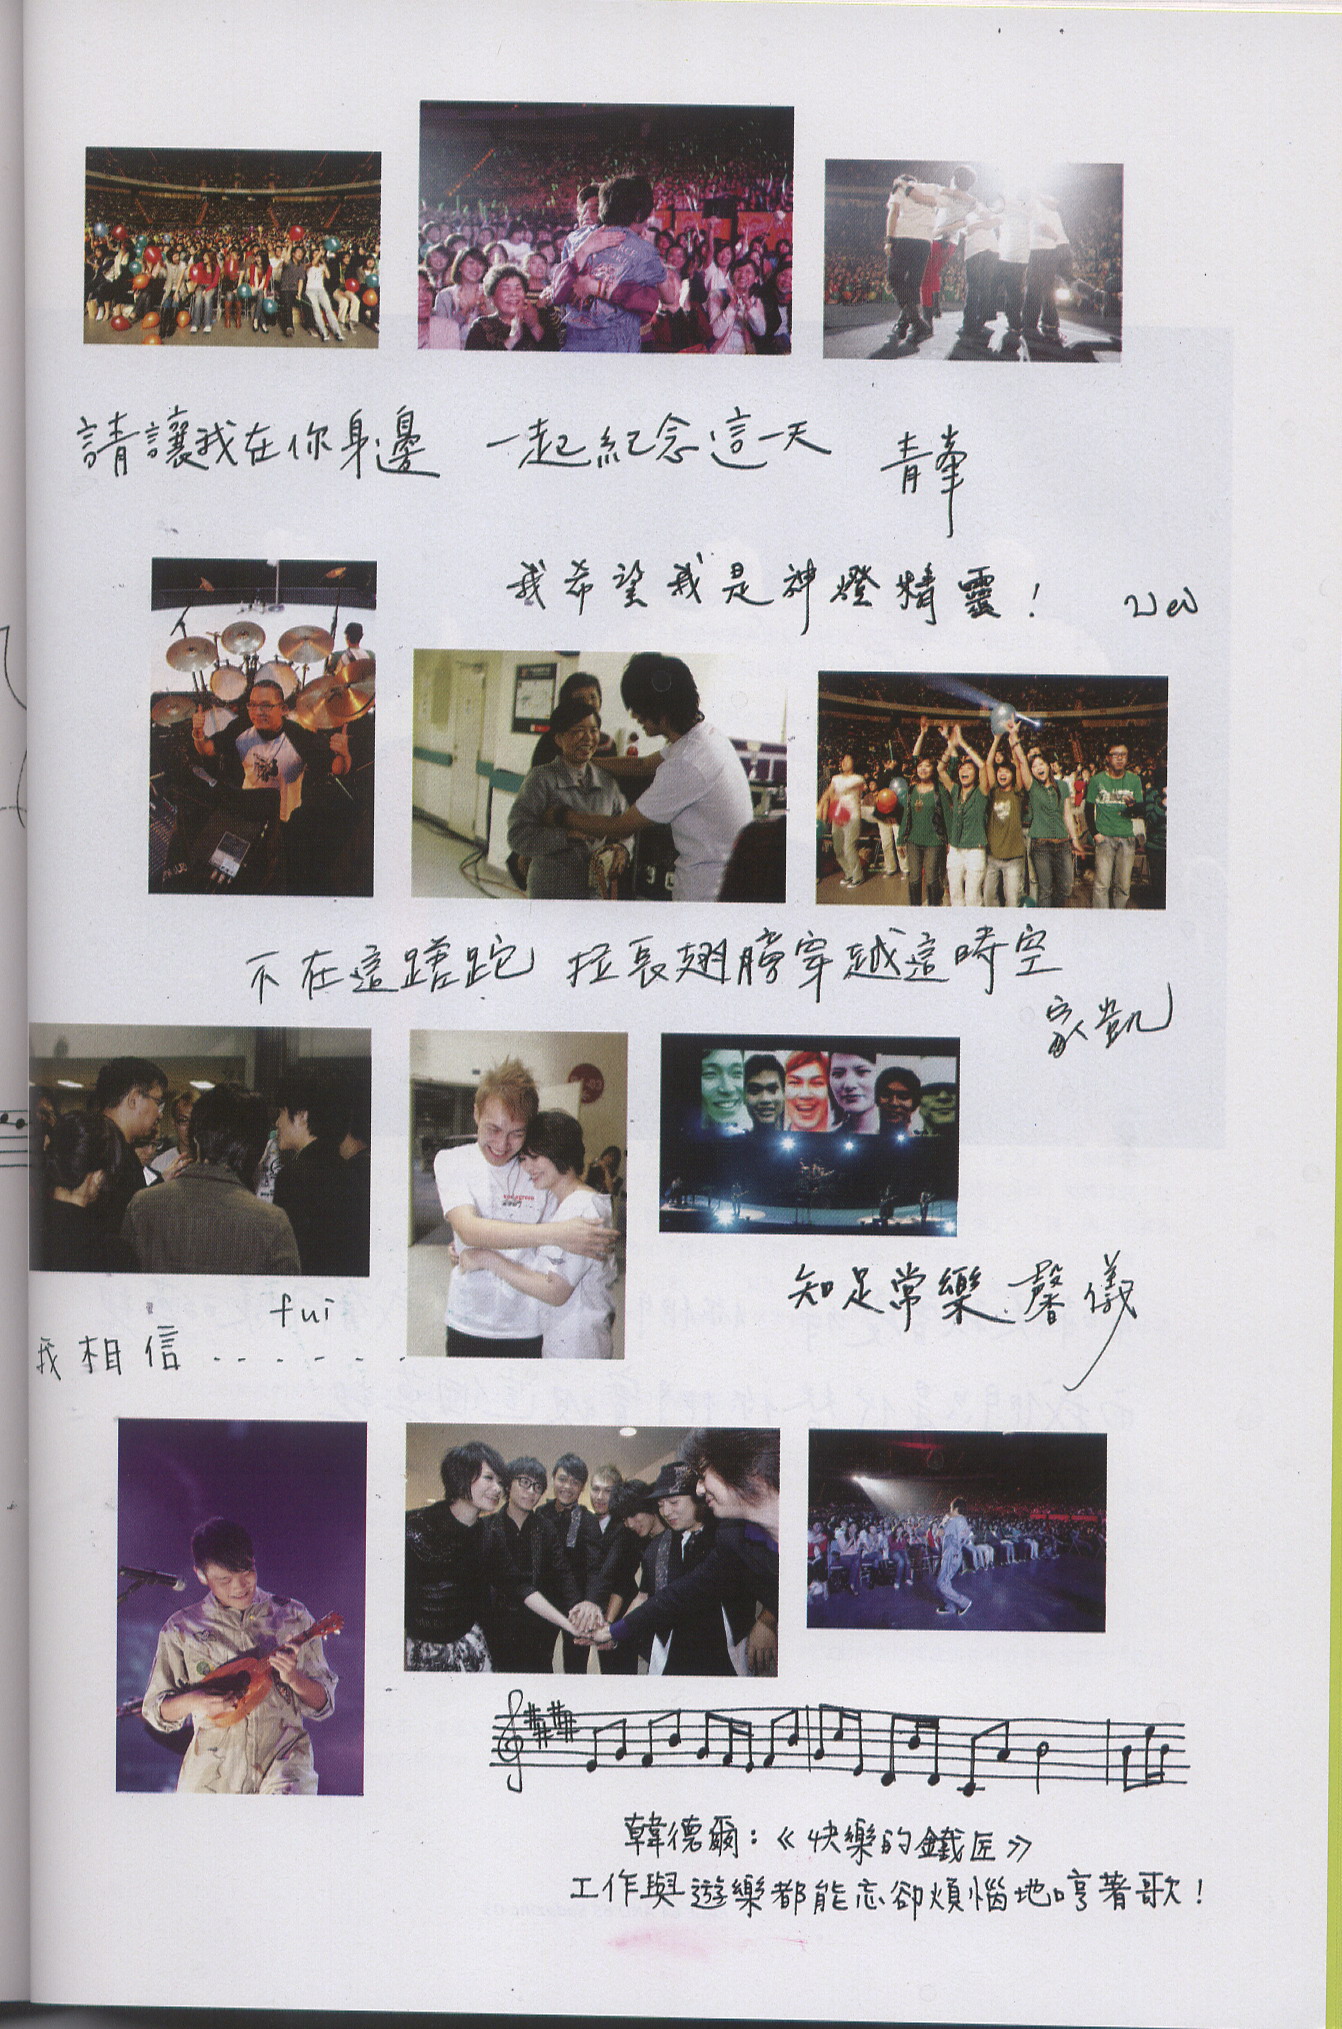 請讓我在你身邊 一起紀念這天 青峯
我希望我是神燈精靈! wei
不在這蹉跎 拉長翅膀穿越這時空
家凱
知足常樂 馨儀
fui
我相信......
韓德爾:《快樂的鐵匠》
工作與遊樂都能忘卻煩惱地哼著歌!